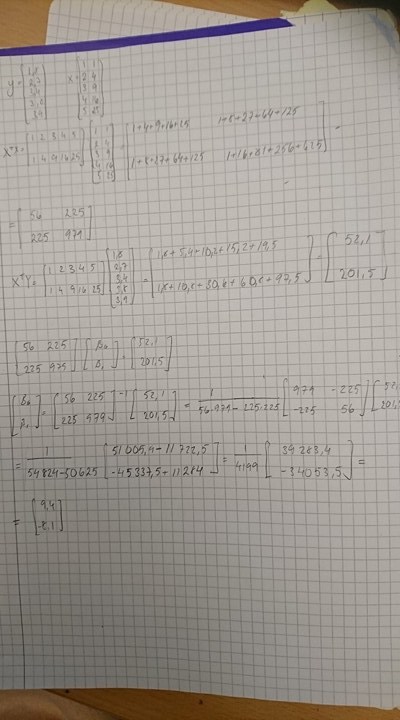 y = [1,8 2,7 3,4 3,8 3,9] x = [1 1 2 4 3 9 4 16 5 25]
XᵀX = [1 2 3 4 5 1 4 9 16 25] [1 1 2 4 3 9 4 16 5 25] = [1+4+9+16+25 1+8+27+64+125 1+8+27+64+125 1+16+81+256+625] =
= [56 225 225 979]
XᵀY = [1 2 3 4 5 1 4 9 16 25] [1,8 2,7 3,4 3,8 3,9] = [1,8+5,4+10,2+15,2+19,5 1,8+10,8+30,6+60,8+97,5] = [52,1 201,5]
[56 225 225 975] [β₀ β₁] = [52,1 201,5]
[β₀ β₁] = [56 225 225 979]⁻¹ [52,1 201,5] = 1/(56·979-225·225) [979 -225 -225 56] [52, 201,5
= 1/(54824-50625) [51005,9-11722,5 -45337,5+11284] = 1/4199 [39283,4 -34053,5] =
= [9,4 -8,1]